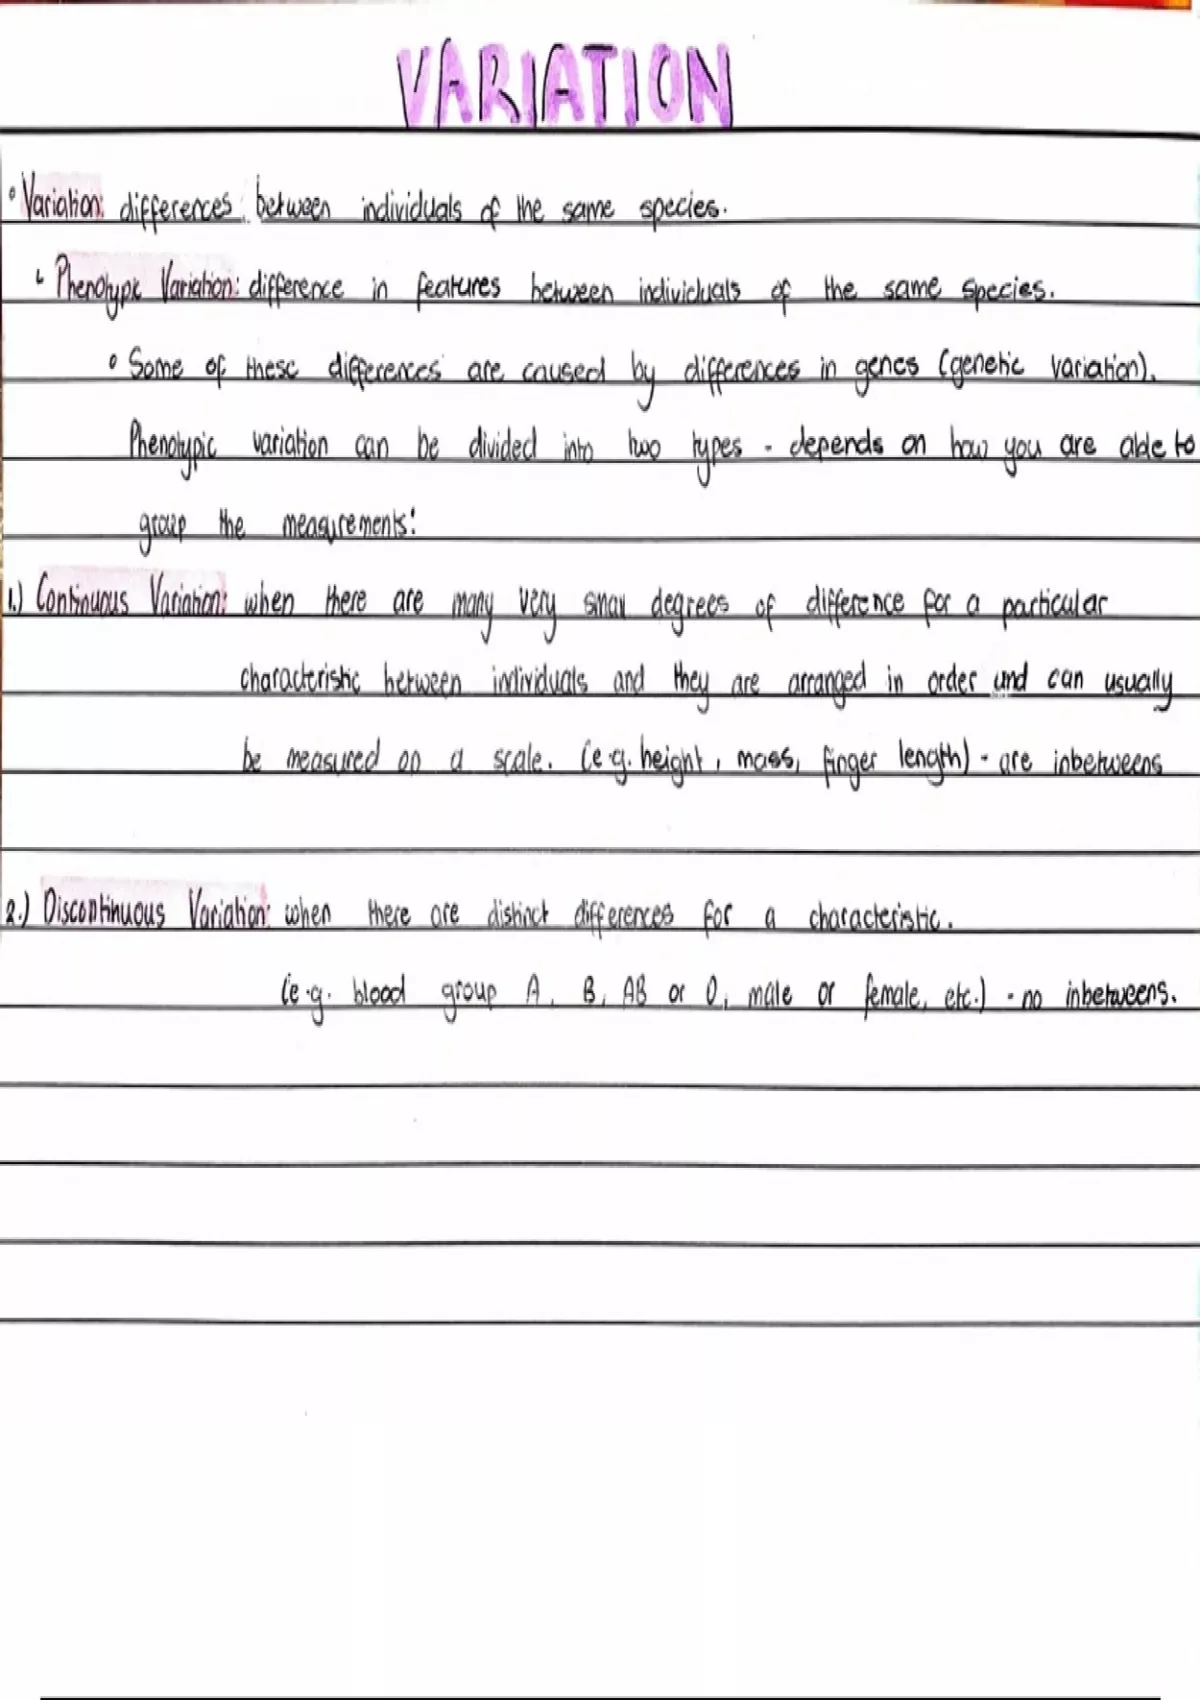 VARIATION
° Variation: differences between individuals of the same species.
↳ Phenotypic Variation: difference in features between individuals of the same species.
° Some of these differences are caused by differences in genes (genetic variation).
Phenotypic variation can be divided into two types - depends on how you are able to
group the measurements:
1.) Continuous Variation: when there are many very small degrees of difference for a particular
characteristic between individuals and they are arranged in order and can usually
be measured on a scale. (e.g. height, mass, finger length) - are inbetweens
2.) Discontinuous Variation: when there are distinct differences for a characteristic.
(e.g. blood group A, B, AB or O, male or female, etc.) - no inbetweens.